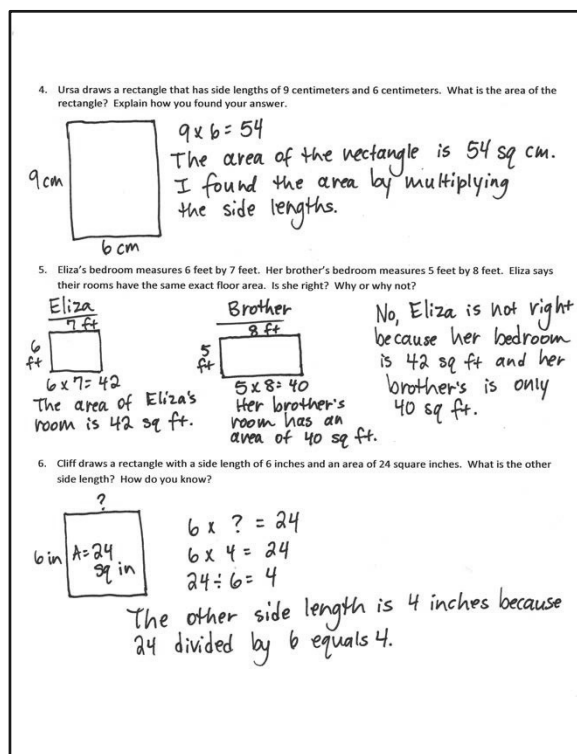 4. Ursa draws a rectangle that has side lengths of 9 centimeters and 6 centimeters. What is the area of the
rectangle? Explain how you found your answer.
9 x 6 = 54
The area of the rectangle is 54 sq cm.
I found the area by multiplying
the side lengths.
9 cm
6 cm
5. Eliza's bedroom measures 6 feet by 7 feet. Her brother's bedroom measures 5 feet by 8 feet. Eliza says
their rooms have the same exact floor area. Is she right? Why or why not?
Eliza
7 ft
6
ft
6 x 7 = 42
The area of Eliza's
room is 42 sq ft.
Brother
8 ft
5
ft
5 x 8 = 40
Her brother's
room has an
area of 40 sq ft.
No, Eliza is not right
because her bedroom
is 42 sq ft and her
brother's is only
40 sq ft.
6. Cliff draws a rectangle with a side length of 6 inches and an area of 24 square inches. What is the other
side length? How do you know?
?
6 in
A = 24
sq in
6 x ? = 24
6 x 4 = 24
24 ÷ 6 = 4
The other side length is 4 inches because
24 divided by 6 equals 4.